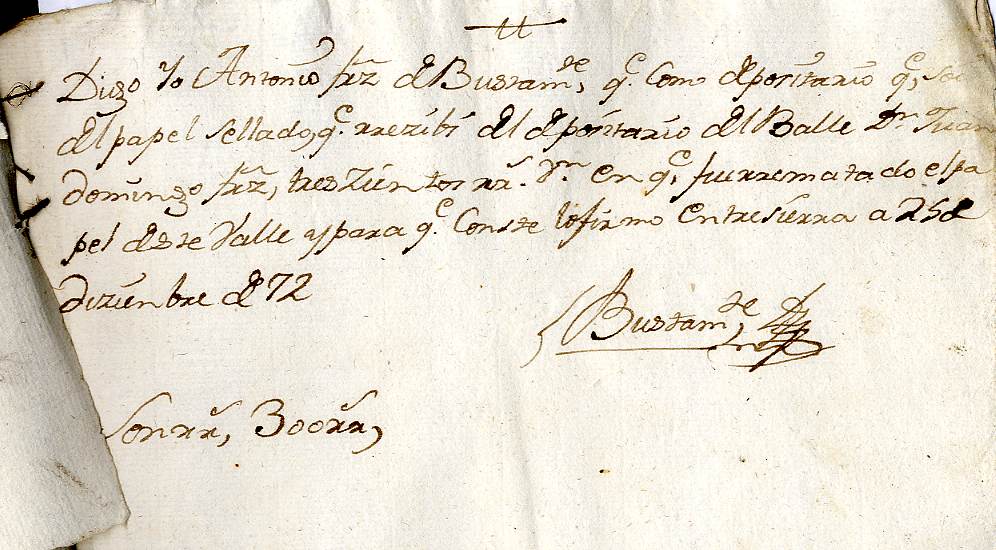 Digo Yo Antonio frz de Bustamte, qe Como depositario qe, soi
del papel sellado, qe rrezibi del depositario del Balle Dn Juan
domingo frz, tres Zientos rrs. Vn. en qe, fue rrematado el pa
pel deste Valle y para qe Conste lo firmo Entresierra a 25 de
dizienbre de 72
Bustamte,
Son rrs, 300 rrs,